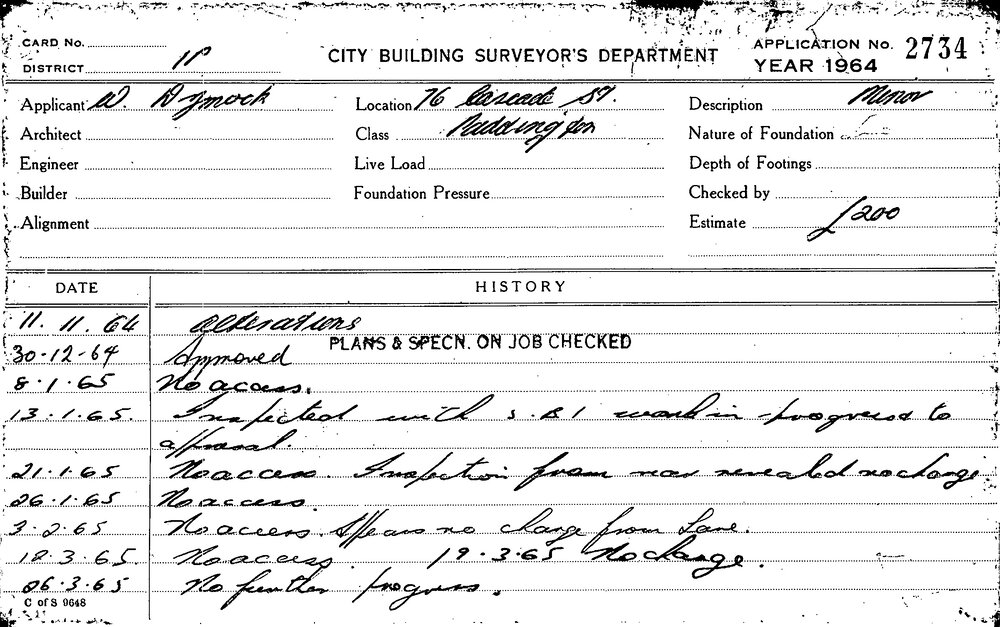 CARD No.
DISTRICT
CITY BUILDING SURVEYOR'S DEPARTMENT
APPLICATION No. 2734
YEAR 1964
Applicant W. Dymock
Location 76 Cascade St.
Description Minor
Architect
Class Paddington
Nature of Foundation
Engineer
Live Load
Depth of Footings
Builder
Foundation Pressure
Checked by
Alignment
Estimate £200
DATE HISTORY
11. 11. 64 Alterations
PLANS & SPECN. ON JOB CHECKED
30-12-64 Approved
8.1.65 No access.
13.1.65. Inspected with S.B.I work in progress to
approval.
21.1.65 No access. Inspection from rear revealed no change
26.1.65 No access.
3.2.65 No access. Appears no change from Lane.
12.3.65. No access. 19.3.65 No change.
26.3.65 No further progress.
C of S 9648